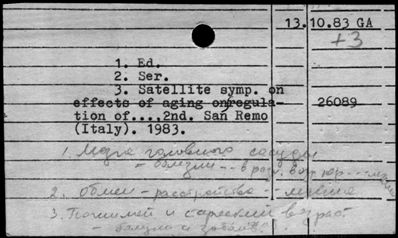 13.10.83 GA
+3
1. Ed.
2. Ser.
3. Satellite symp. on
effects of aging on regula-
26089
tion of....,2nd. San Remo
(Italy). 1983.
1. Мозга головного сосуды
- болезни -- в
2. Обмен - расстройства --
3. Пожилой и старческий возраст